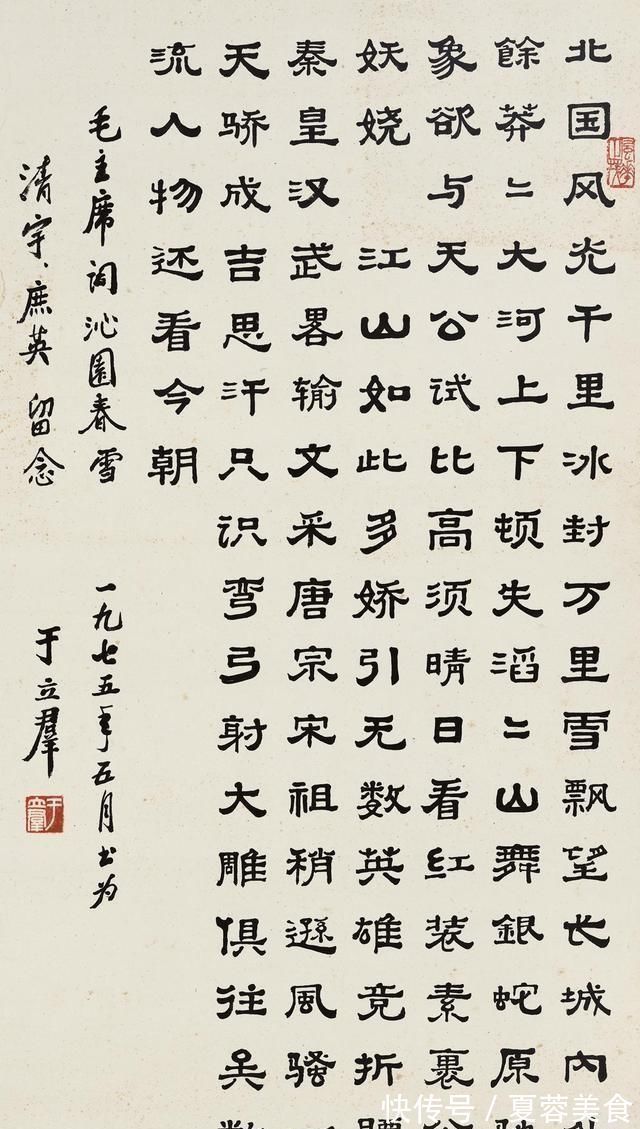 北国风光千里冰封万里雪飘望长城内外
餘莽〻大河上下顿失滔〻山舞銀蛇原驰
象欲与天公试比高须晴日看红装素裹分
妖娆 江山如此多娇引无数英雄竞折腰
秦皇汉武畧输文采唐宗宋祖稍逊風骚
天骄成吉思汗只识弯弓射大雕俱往矣数
流人物还看今朝
毛主席词沁園春雪 一九七五年五月书为
清宇、庶英留念 于立羣
于立羣
快传号／夏蓉美食